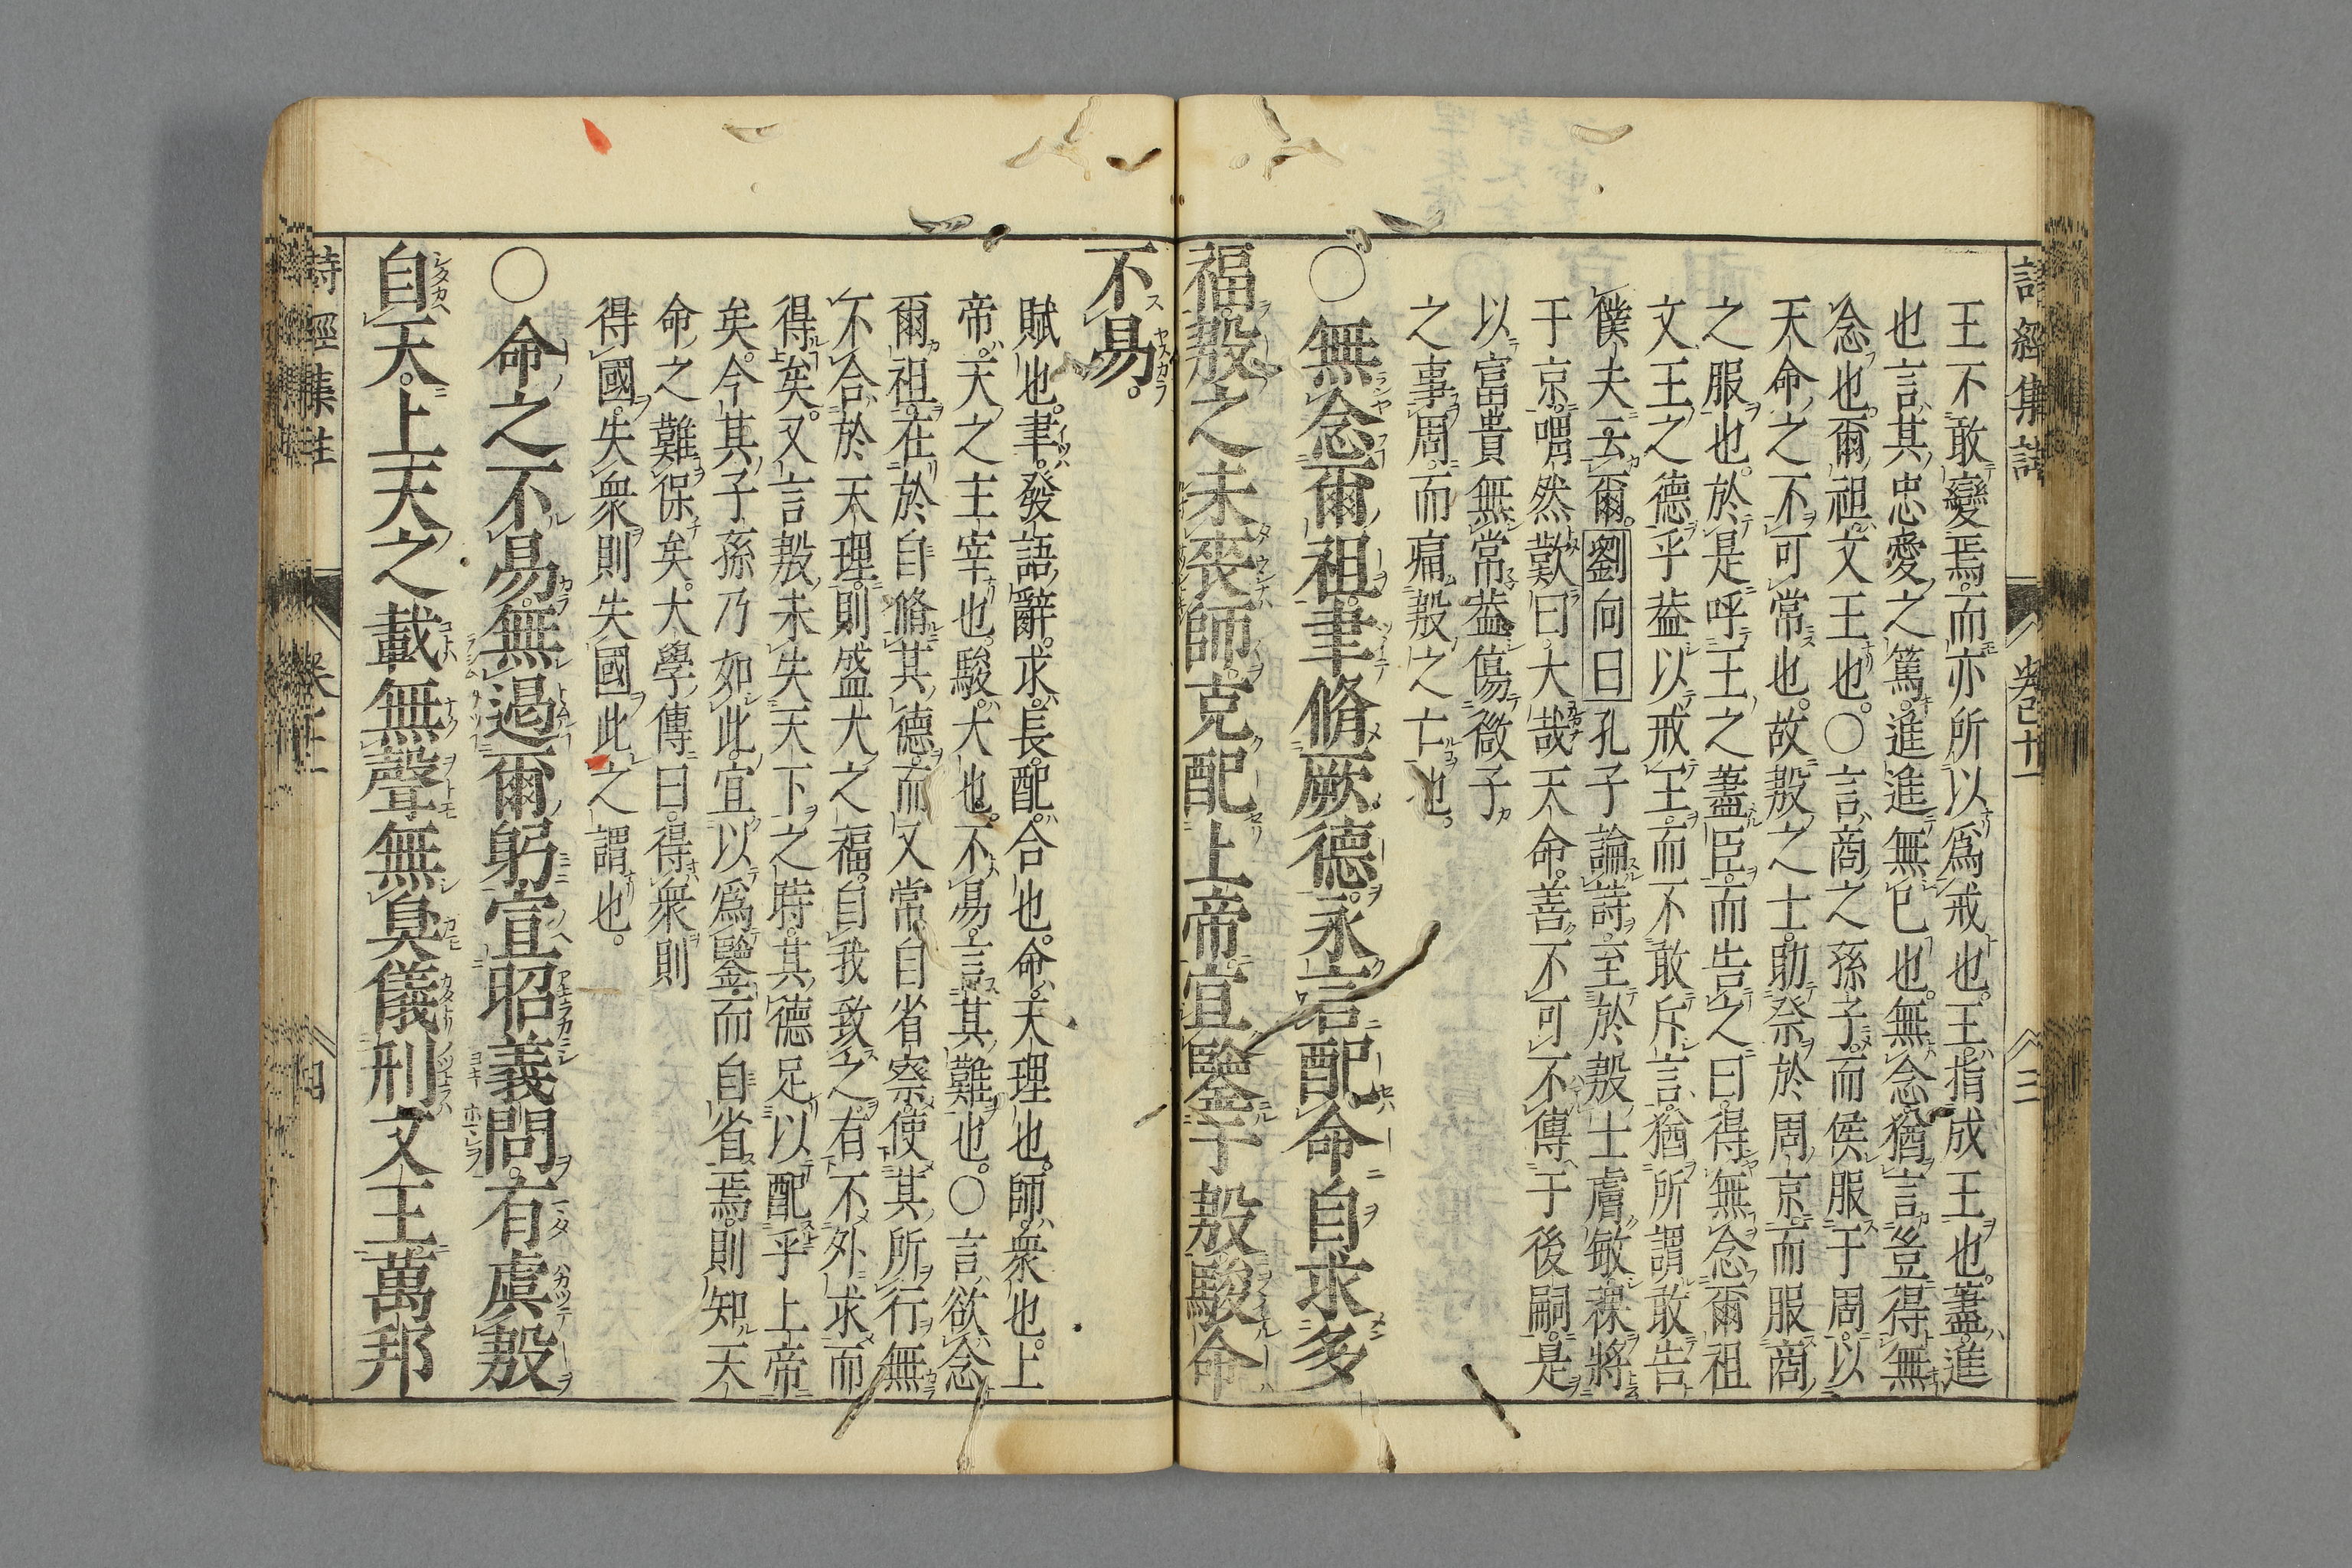 詩經集註 卷之十一 三
王不敢變焉。而亦所以爲戒也。王。指成王也。藎。進
也言其忠愛之篤。進進無已也。無念猶言豈得無
念也。爾祖。文王也。○言商之孫子。而侯服于周。以
天命之不可常也。故殷之士。助祭於周京而服商
之服也。於是呼王之藎臣。而告之曰。得無念爾祖
文王之德乎葢以戒王。而不敢斥言。猶所謂敢告
僕夫云爾。劉向曰孔子論詩。至於殷士膚敏祼將
于京。喟然歎曰。大哉天命。善不可不傳于後嗣。是
以富貴無常葢傷微子
之事周。而痛殷之亡也。
○無念爾祖。聿脩厥德。永言配命自求多
福殷之未喪師。克配上帝。宜鑒于殷駿命
不易。
賦也。聿。發語辭。永。長。配。合也。命。天理也。師。衆也。上
帝。天之主宰也。駿。大也。不易。言其難也。○言欲念
爾祖。在於自脩其德。而又常自省察。使其所行無
不合於天理。則盛大之福。自我致之。有不外求而
得矣。又言殷未失天下之時。其德足以配乎上帝
矣。今其子孫乃如此。宜以爲鑒。而自省焉。則知天
命之難保矣。大學傳曰。得衆則
得國。失衆則失國此之謂也。
○命之不易。無遏爾躬宣昭義問。有虞殷
自天。上天之載無聲無臭儀刑文王萬邦
詩經集註
四